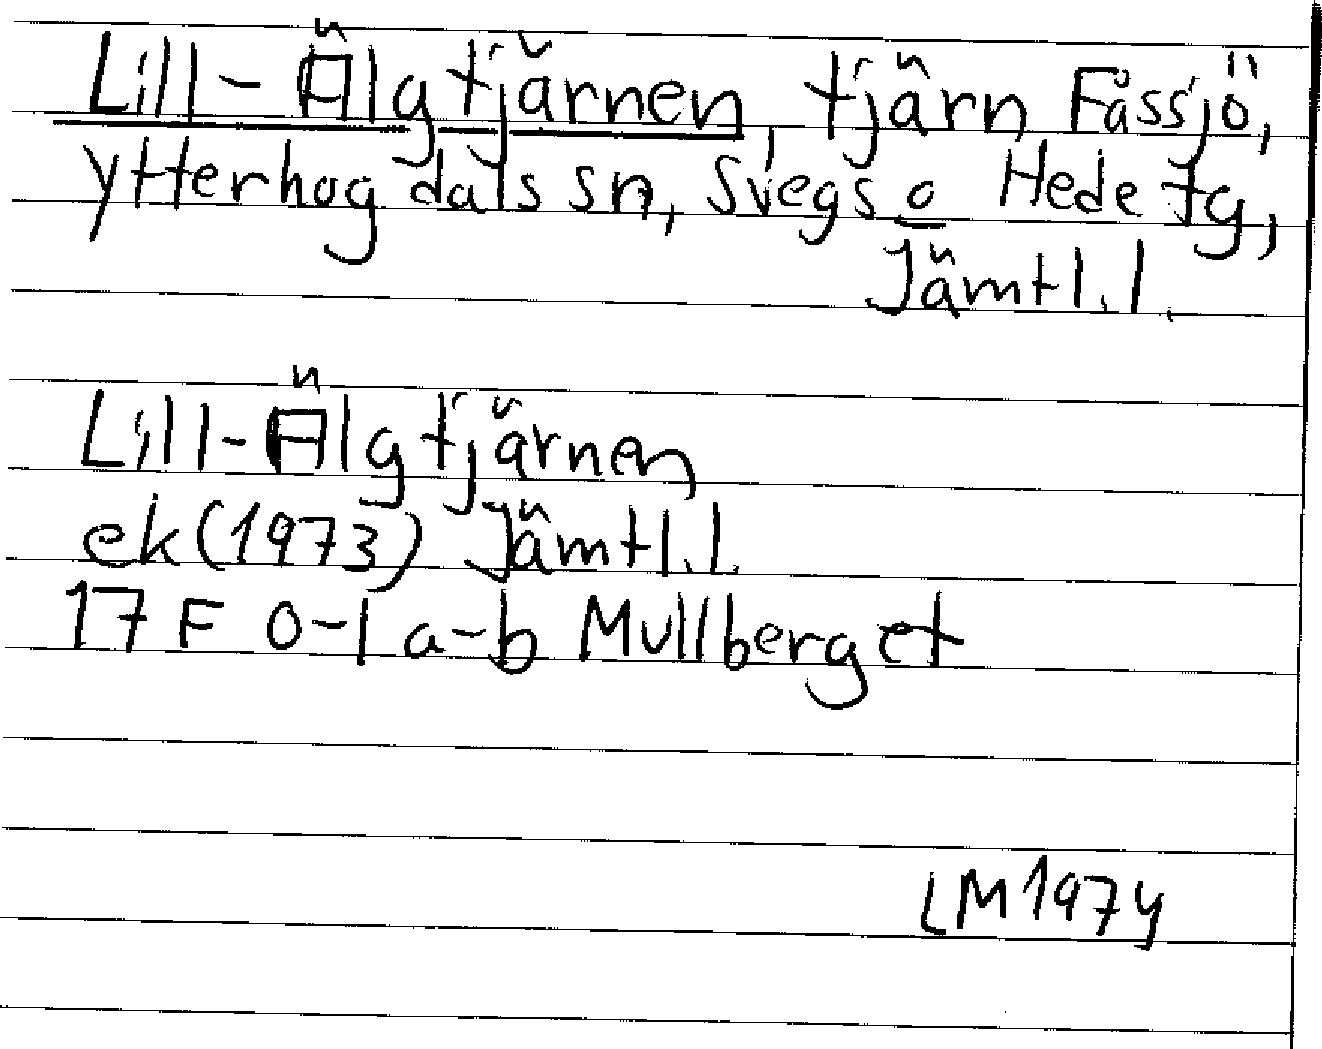 Lill-Älgtjärnen, tjärn Fåssjö,
Ytterhogdals sn, Svegs o Hede tg,
Jämtl.l.
Lill-Älgtjärnen
ek(1973) Jämtl.l.
17 F 0-1 a-b Mullberget
LM 1974